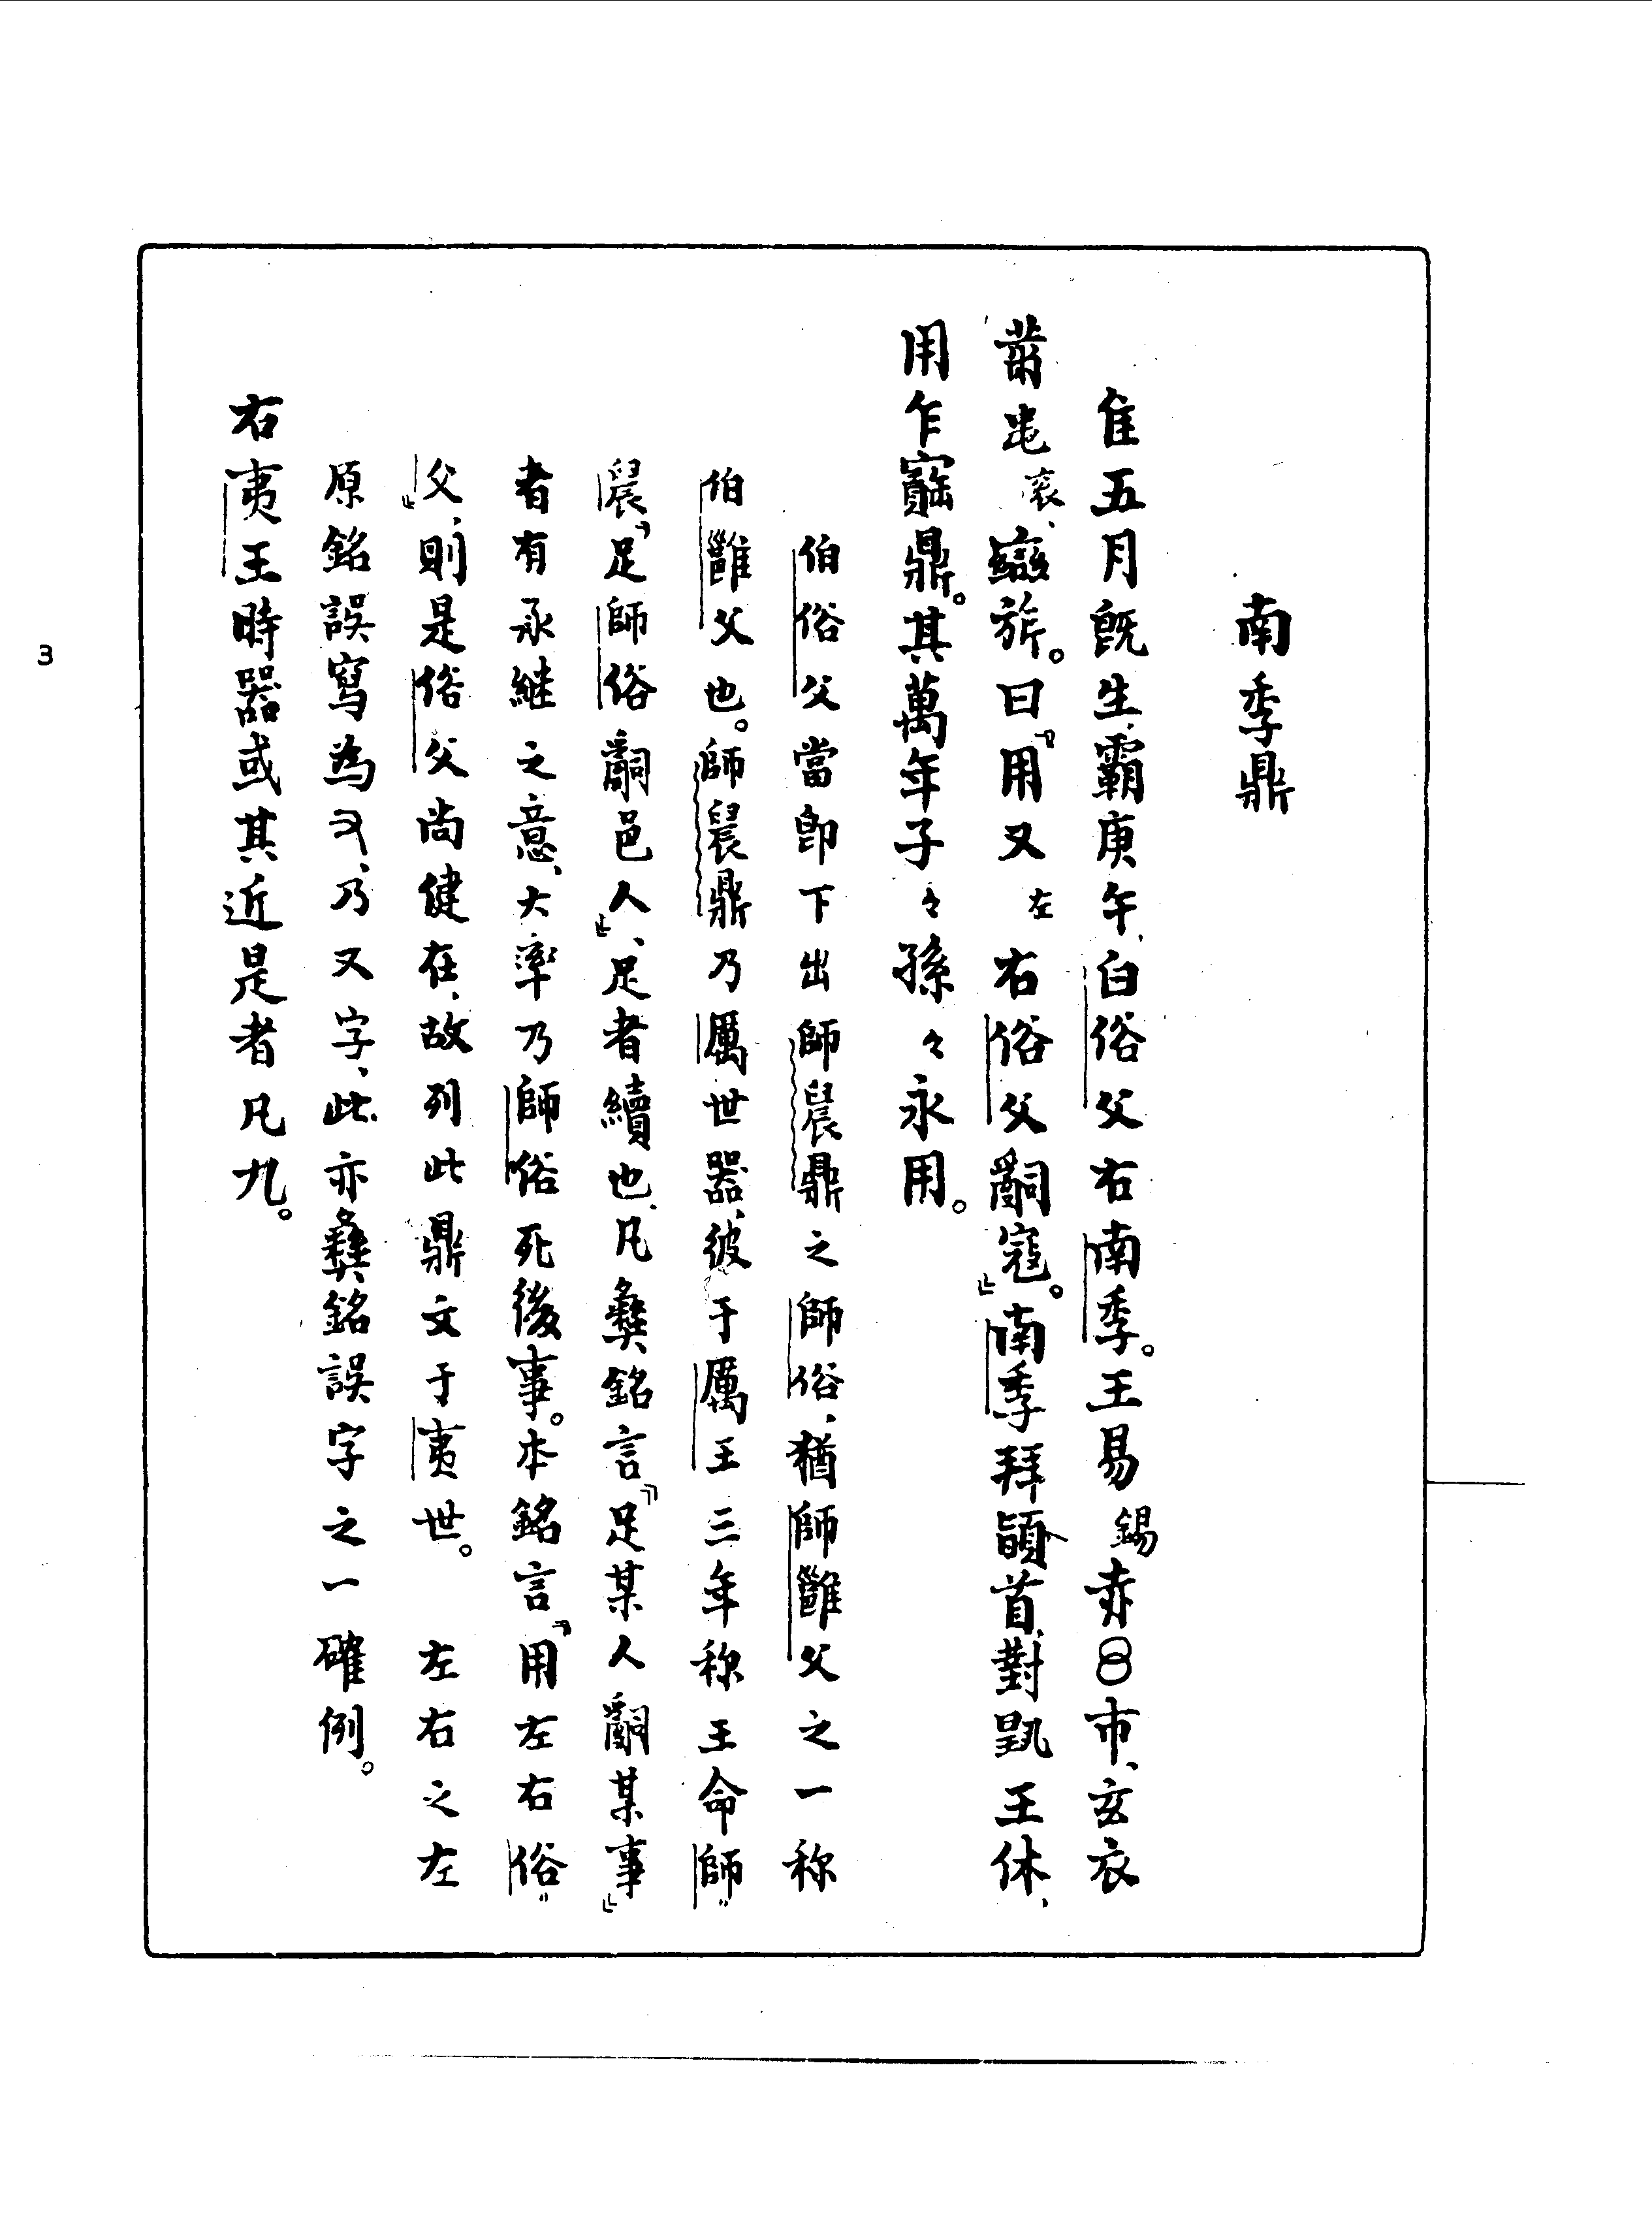 南季鼎
隹五月旣生霸庚午、白俗父右南季。王易錫赤8巿、玄衣
黹屯衮、䜌旂。曰『用又左右俗父𤔲寇。』南季拜䭫首、對𩛥王休、
用乍寶鼎。其萬年子々孫々永用。
伯俗父當卽下出師晨鼎之師俗、猶師雝父之一称
伯雝父也。師晨鼎乃厲世器、彼于厲王三年称王命師
晨『足師俗𤔲邑人』、足者續也、凡彝銘言『足某人𤔲某事』
者有承継之意、大率乃師俗死後事。本銘言『用左右俗
父』、則是俗父尚健在、故列此鼎文于夷世。　左右之左
原銘誤寫為又、乃又字、此亦彝銘誤字之一確例。
右夷王時器或其近是者凡九。
3